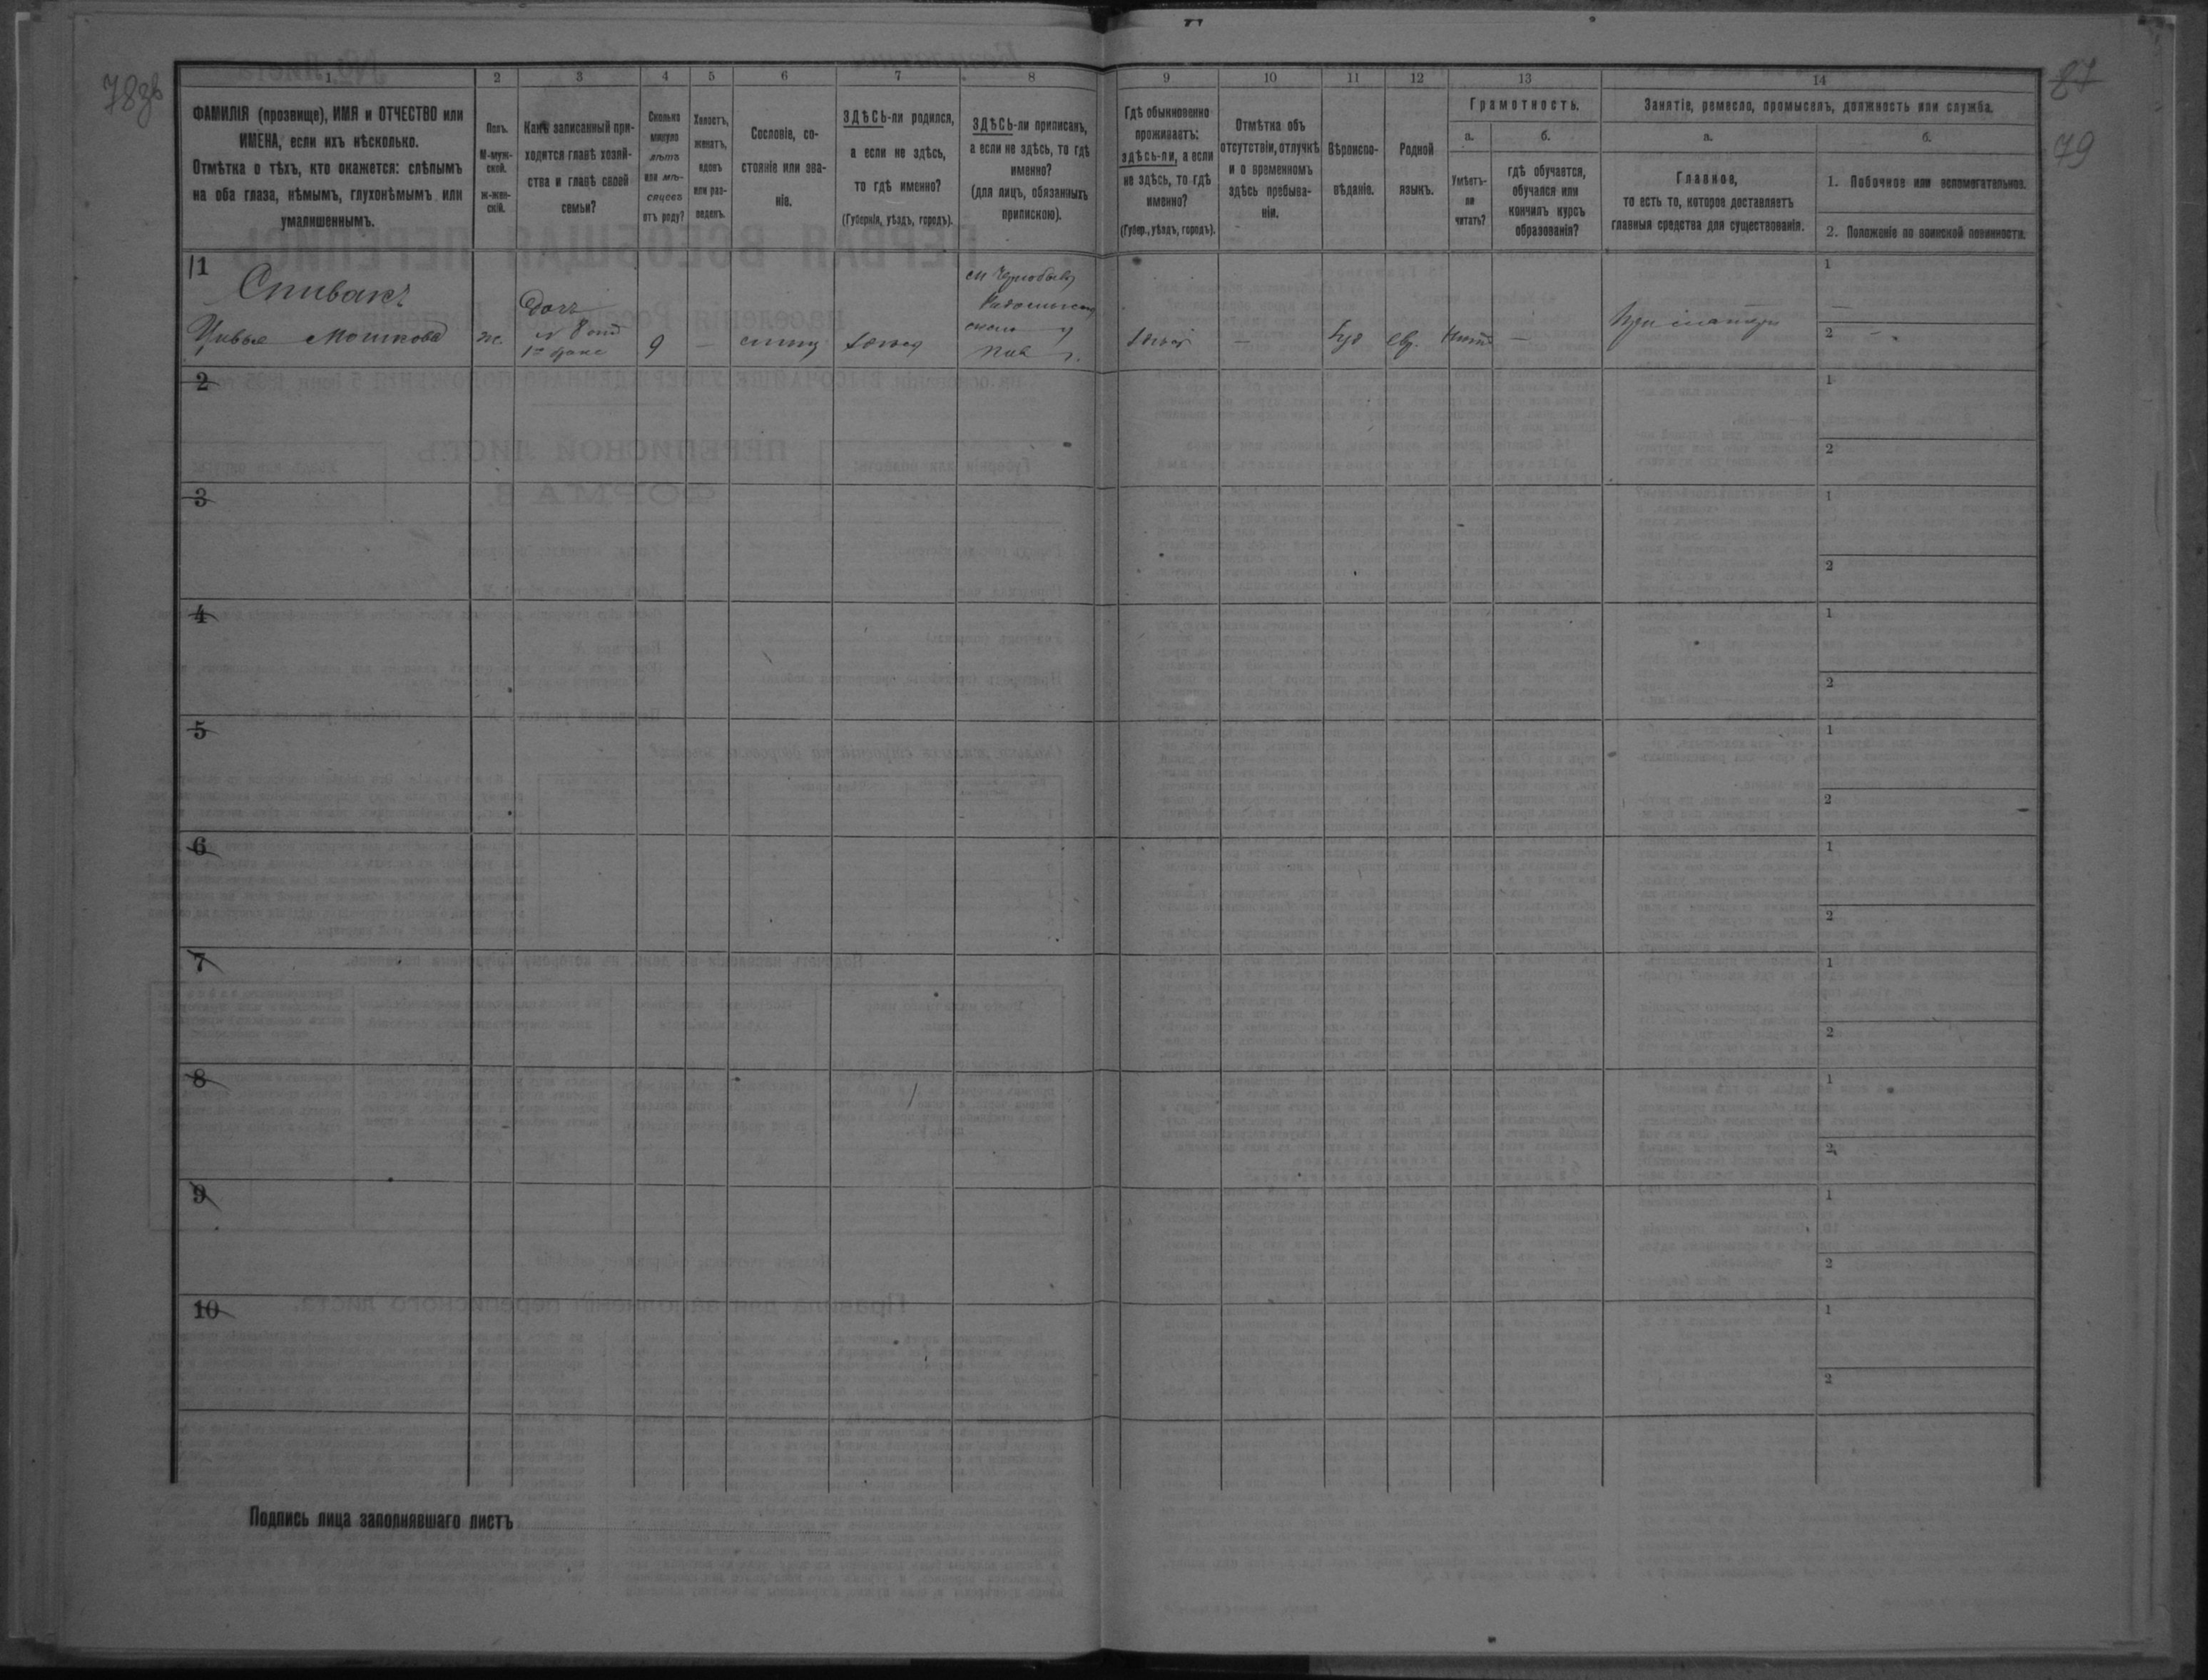 78зв
87
79
1
ФАМИЛІЯ (прозвище), ИМЯ и ОТЧЕСТВО или
ИМЕНА, если ихъ нѣсколько.
Отмѣтка о тѣхъ, кто окажется: слѣпымъ
на оба глаза, нѣмымъ, глухонѣмымъ или
умалишеннымъ.
2
Полъ.
М-муж-
ской.
ж-жен-
скій.
3
Какъ записанный при-
ходится главѣ хозяй-
ства и главѣ своей
семьи?
4
Сколько
минуло
лѣтъ
или мѣ-
сяцевъ
отъ роду?
5
Холостъ,
женатъ,
вдовъ
или раз-
веденъ.
6
Сословіе, со-
стояніе или зва-
ніе.
7
ЗДѢСЬ-ли родился,
а если не здѣсь,
то гдѣ именно?
(Губернія, уѣздъ, городъ).
8
ЗДѢСЬ-ли приписанъ,
а если не здѣсь, то гдѣ
именно?
(для лицъ, обязанныхъ
припискою).
9
Гдѣ обыкновенно
проживаетъ:
здѣсь-ли, а если
не здѣсь, то гдѣ
именно?
(Губер., уѣздъ, городъ).
10
Отмѣтка объ
отсутствіи, отлучкѣ
и о временномъ
здѣсь пребыва-
ніи.
11
Вѣроиспо-
вѣданіе.
12
Родной
языкъ.
13
Грамотность.
а.
Умѣетъ-
ли
читать?
б.
гдѣ обучается,
обучался или
кончилъ курсъ
образованія?
14
Занятіе, ремесло, промыселъ, должность или служба.
а.
Главное,
то есть то, которое доставляетъ
главныя средства для существованія.
б.
1. Побочное или вспомогательное.
2. Положеніе по воинской повинности.
1
Спивакъ
Цивья Мошкова
ж.
Дочь
1го брака
9
—
здѣсь
м. Чернобыль
здѣсь
—
Іуд
евр.
нѣтъ
—
При матери
1
—
2 —
2
1
2
3
1
2
4
1
2
5
1
2
6
1
2
7
1
2
8
1
2
9
1
2
10
1
2
Подпись лица заполнявшаго листъ